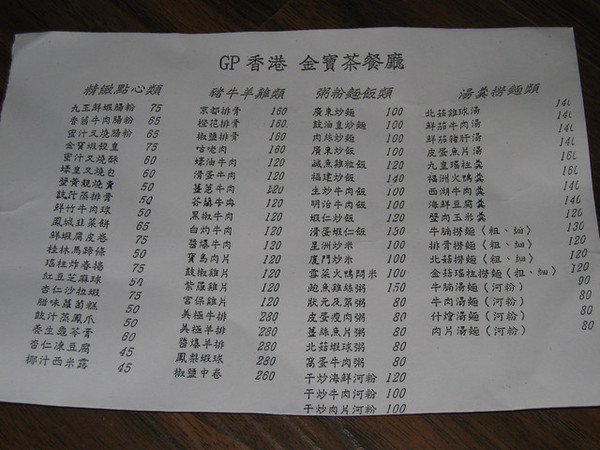 GP 香港 金寶茶餐廳
精緻點心類
九王鮮蝦腸粉 75
香茜牛肉腸粉 65
蜜汁叉燒腸粉 65
金寶蝦餃皇 75
蜜汁叉燒酥 60
蠔皇叉燒包 60
蟹黃靚燒賣 50
豉汁蒸排骨 50
鮮竹牛肉球 50
鳳城韮菜餅 65
鮮蝦腐皮卷 75
桂林馬蹄條 50
瑤柱炸春捲 75
紅豆芝麻球 50
杏仁沙拉蝦 75
腊味蘿蔔糕 50
豉汁蒸鳳爪 50
養生龜苓膏 60
杏仁凍豆腐 45
椰汁西米露 45
豬牛羊雞類
京都排骨 160
橙花排骨 160
椒鹽排骨 160
咕咾肉 160
蠔油牛肉 120
滑蛋牛肉 120
薑蔥牛肉 120
芥蘭牛肉 120
黑椒牛肉 120
白灼牛肉 120
醬爆牛肉 120
寶島肉片 120
豉椒雞片 120
紫蘿雞片 120
宮保雞片 120
美極牛排 280
美極羊排 280
醬爆羊排 280
鳳梨蝦球 280
椒鹽中卷 260
粥粉麵飯類
廣東炒麵 100
豉油皇炒麵 100
肉絲炒麵 100
廣東炒飯 100
鹹魚雞粒飯 120
福建炒飯 140
生炒牛肉飯 100
明治牛肉飯 100
蝦仁炒飯 120
滑蛋蝦仁飯 130
星洲炒米 100
廈門炒米 100
雪菜火鴨悶米 100
鮑魚雞絲粥 150
狀元及第粥 80
皮蛋瘦肉粥 80
薑絲魚片粥 80
北菇蝦球粥 80
窩蛋牛肉粥 80
干炒海鮮河粉 120
干炒牛肉河粉 100
干炒肉片河粉 100
湯羹撈麵類
北菇雞球湯 140
鮮茄牛肉湯 140
鮮茄豬肝湯 140
皮蛋魚片湯 140
九皇瑤柱羹 160
福洲火鴨羹 140
西湖牛肉羹 140
海鮮豆腐羹 140
蟹肉玉米羹 120
牛腩撈麵（粗、幼） 130
排骨撈麵（粗、幼） 120
北菇撈麵（粗、幼） 120
金菇瑤柱撈麵（粗、幼） 120
牛腩湯麵（河粉） 90
牛肉湯麵（河粉） 80
什燴湯麵（河粉） 80
肉片湯麵（河粉） 80